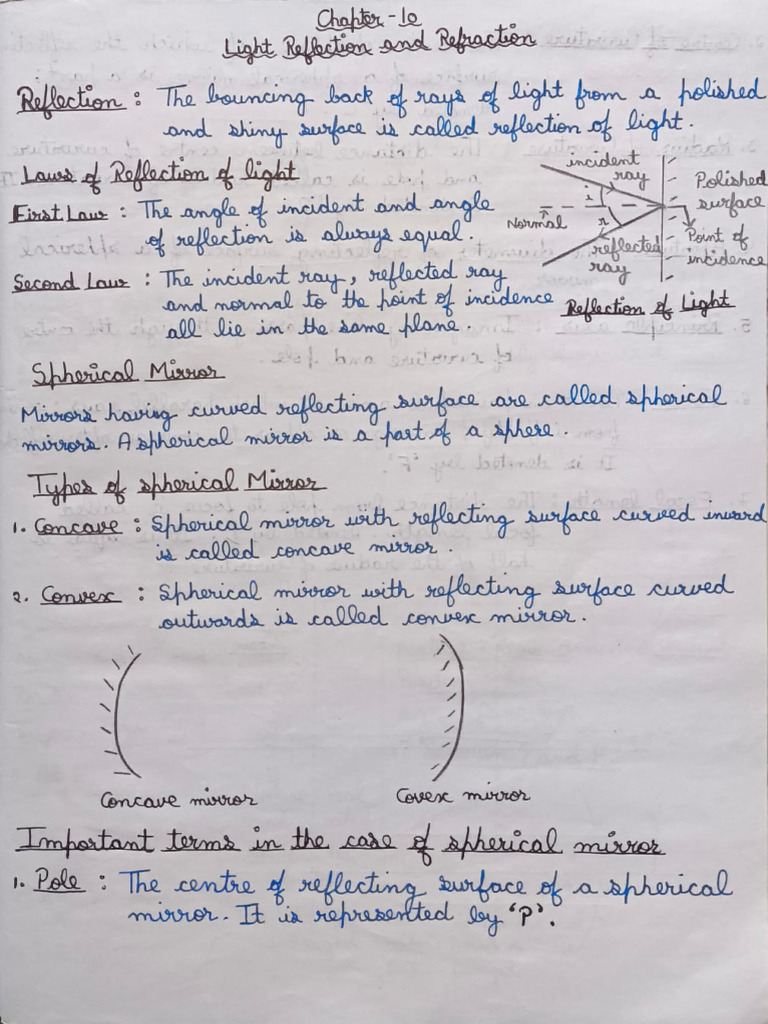 Chapter - 10
Light Reflection and Refraction
Reflection : The bouncing back of rays of light from a polished
and shiny surface is called reflection of light.
Laws of Reflection of light
First Law : The angle of incident and angle
of reflection is always equal.
Second Law : The incident ray, reflected ray
and normal to the point of incidence
all lie in the same plane.
incident
ray
i
r
Normal
reflected
ray
Polished
surface
Point of
incidence
Reflection of Light
Spherical Mirror
Mirrors having curved reflecting surface are called spherical
mirrors. A spherical mirror is a part of a sphere.
Types of spherical Mirror
1. Concave : Spherical mirror with reflecting surface curved inward
is called concave mirror.
2. Convex : Spherical mirror with reflecting surface curved
outwards is called convex mirror.
Concave mirror
Covex mirror
Important terms in the case of spherical mirror
1. Pole : The centre of reflecting surface of a spherical
mirror. It is represented by 'P'.